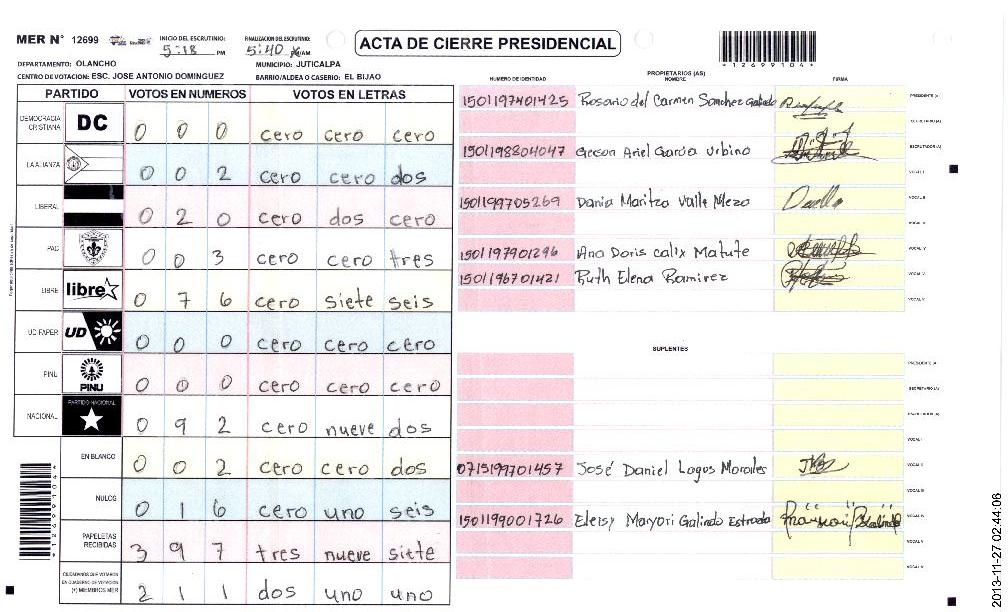 MER N° 12699
INICIO DEL ESCRUTINIO:
5:18 PM
FINALIZACION DEL ESCRUTINIO:
5:40 PM/AM
ACTA DE CIERRE PRESIDENCIAL
*12699104*
DEPARTAMENTO: OLANCHO
MUNICIPIO: JUTICALPA
CENTRO DE VOTACION: ESC. JOSE ANTONIO DOMINGUEZ
BARRIO/ALDEA O CASERIO: EL BIJAO
PARTIDO VOTOS EN NUMEROS VOTOS EN LETRAS
DEMOCRACIA CRISTIANA DC 0 0 0 cero cero cero
LA ALIANZA 0 0 2 cero cero dos
LIBERAL 0 2 0 cero dos cero
PAC 0 0 3 cero cero tres
LIBRE libre 0 7 6 cero siete seis
UD FAPER UD 0 0 0 cero cero cero
PINU PINU 0 0 0 cero cero cero
NACIONAL PARTIDO NACIONAL 0 9 2 cero nueve dos
EN BLANCO 0 0 2 cero cero dos
NULOS 0 1 6 cero uno seis
PAPELETAS RECIBIDAS 3 9 7 tres nueve siete
CIUDADANOS QUE VOTARON
EN CUADERNO DE VOTACION
(+) MIEMBROS MER 2 1 1 dos uno uno
*12699104*
PROPIETARIOS (AS)
NUMERO DE IDENTIDAD NOMBRE FIRMA
1501197401425 Rosario del Carmen Sanchez Galindo PRESIDENTE (A)
SECRETARIO (A)
1501198804047 Gerson Ariel Garcia Urbino ESCRUTADOR (A)
VOCAL I
1501199705269 Dania Maritza Valle Meza VOCAL II
VOCAL III
1501197901296 Ana Doris Calix Matute VOCAL IV
1501196701421 Ruth Elena Ramirez VOCAL V
VOCAL VI
SUPLENTES
PRESIDENTE (A)
SECRETARIO (A)
ESCRUTADOR (A)
VOCAL I
0715199701457 José Daniel Lagos Morales VOCAL II
VOCAL III
1501199001726 Eleisy Maryori Galindo Estrada VOCAL IV
VOCAL V
VOCAL VI
2013-11-27 02:44:06